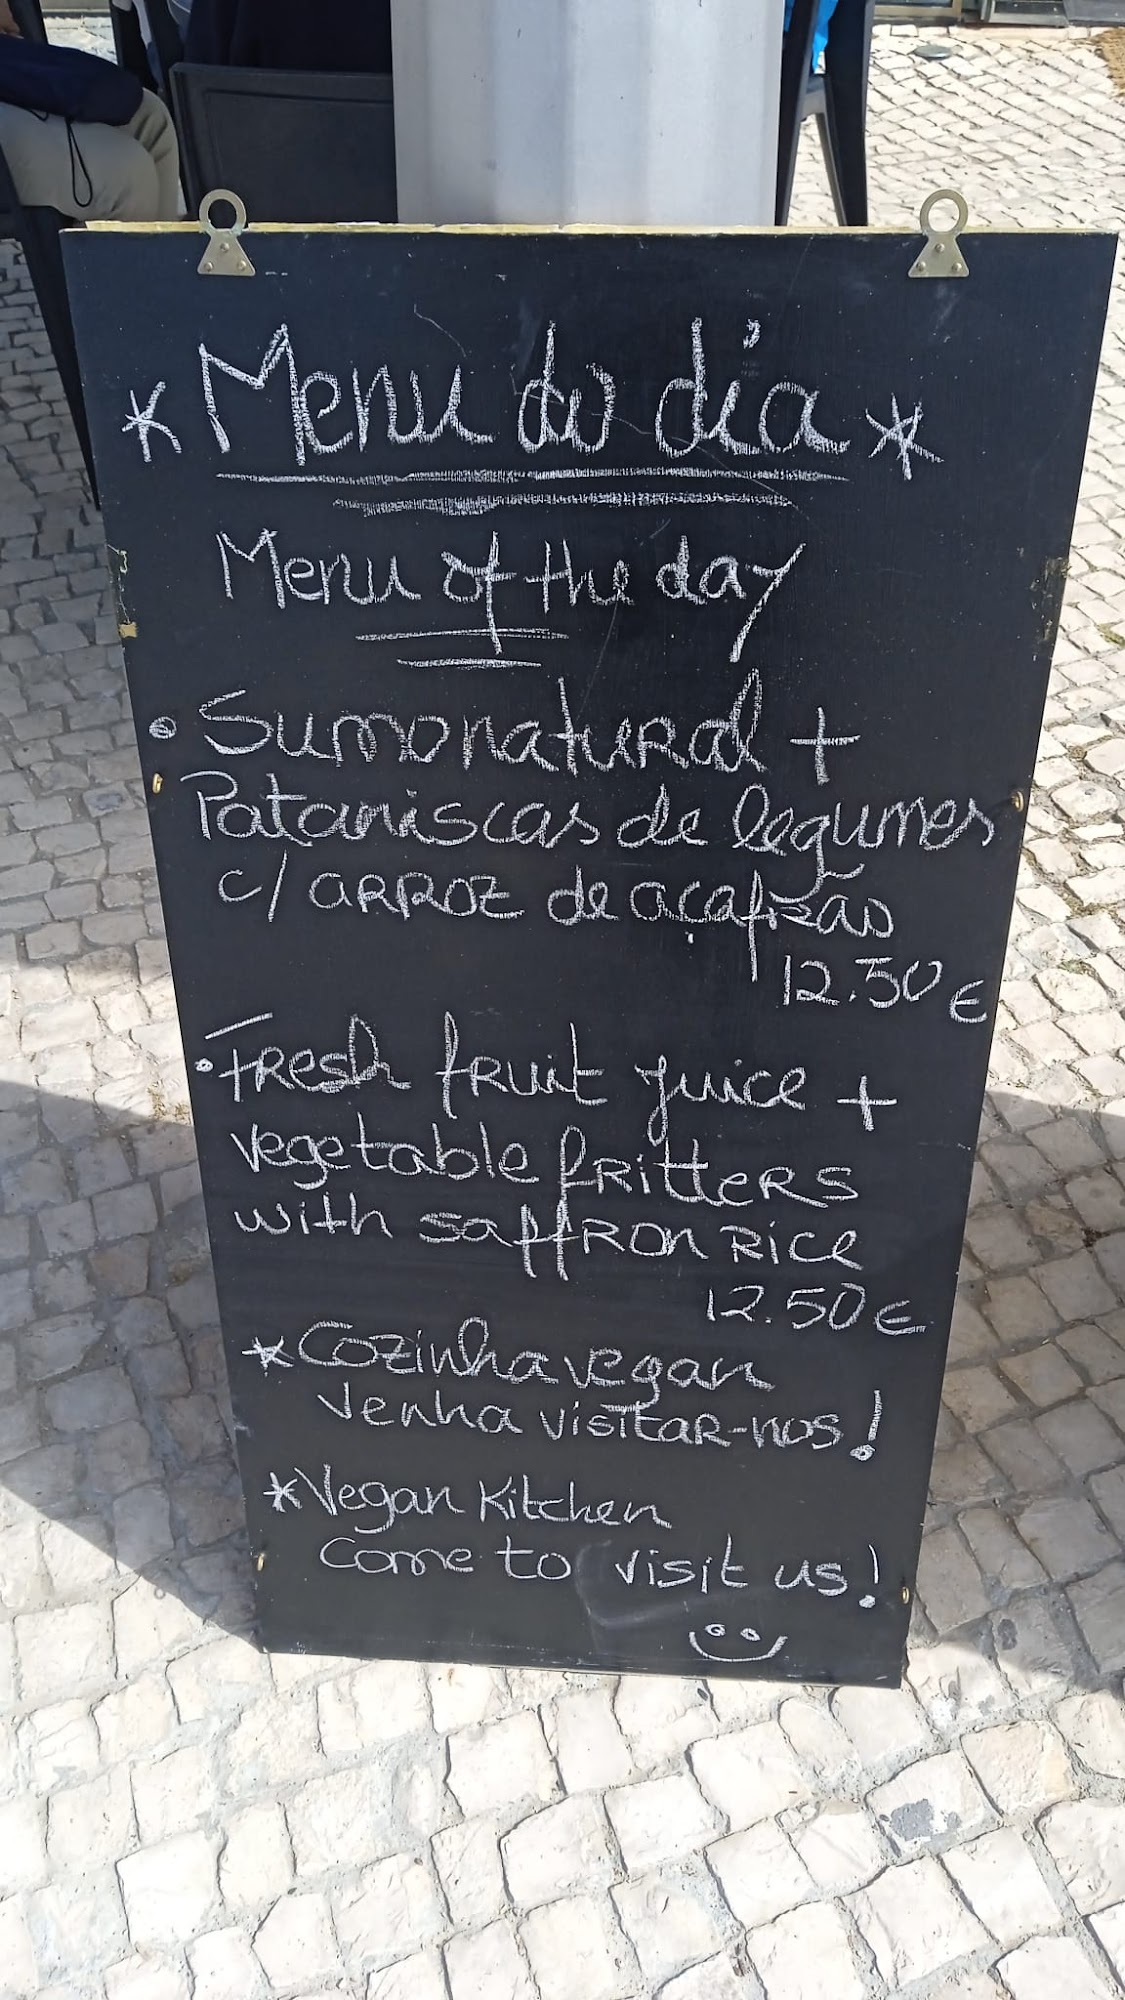 *Menu do dia*
Menu of the day
• Sumo natural +
Pataniscas de legumes
c/ arroz de açafrão
12.50€
• Fresh fruit juice +
vegetable fritters
with saffron rice
12.50€
*Cozinha vegan
Venha visitar-nos!
*Vegan Kitchen
Come to visit us!